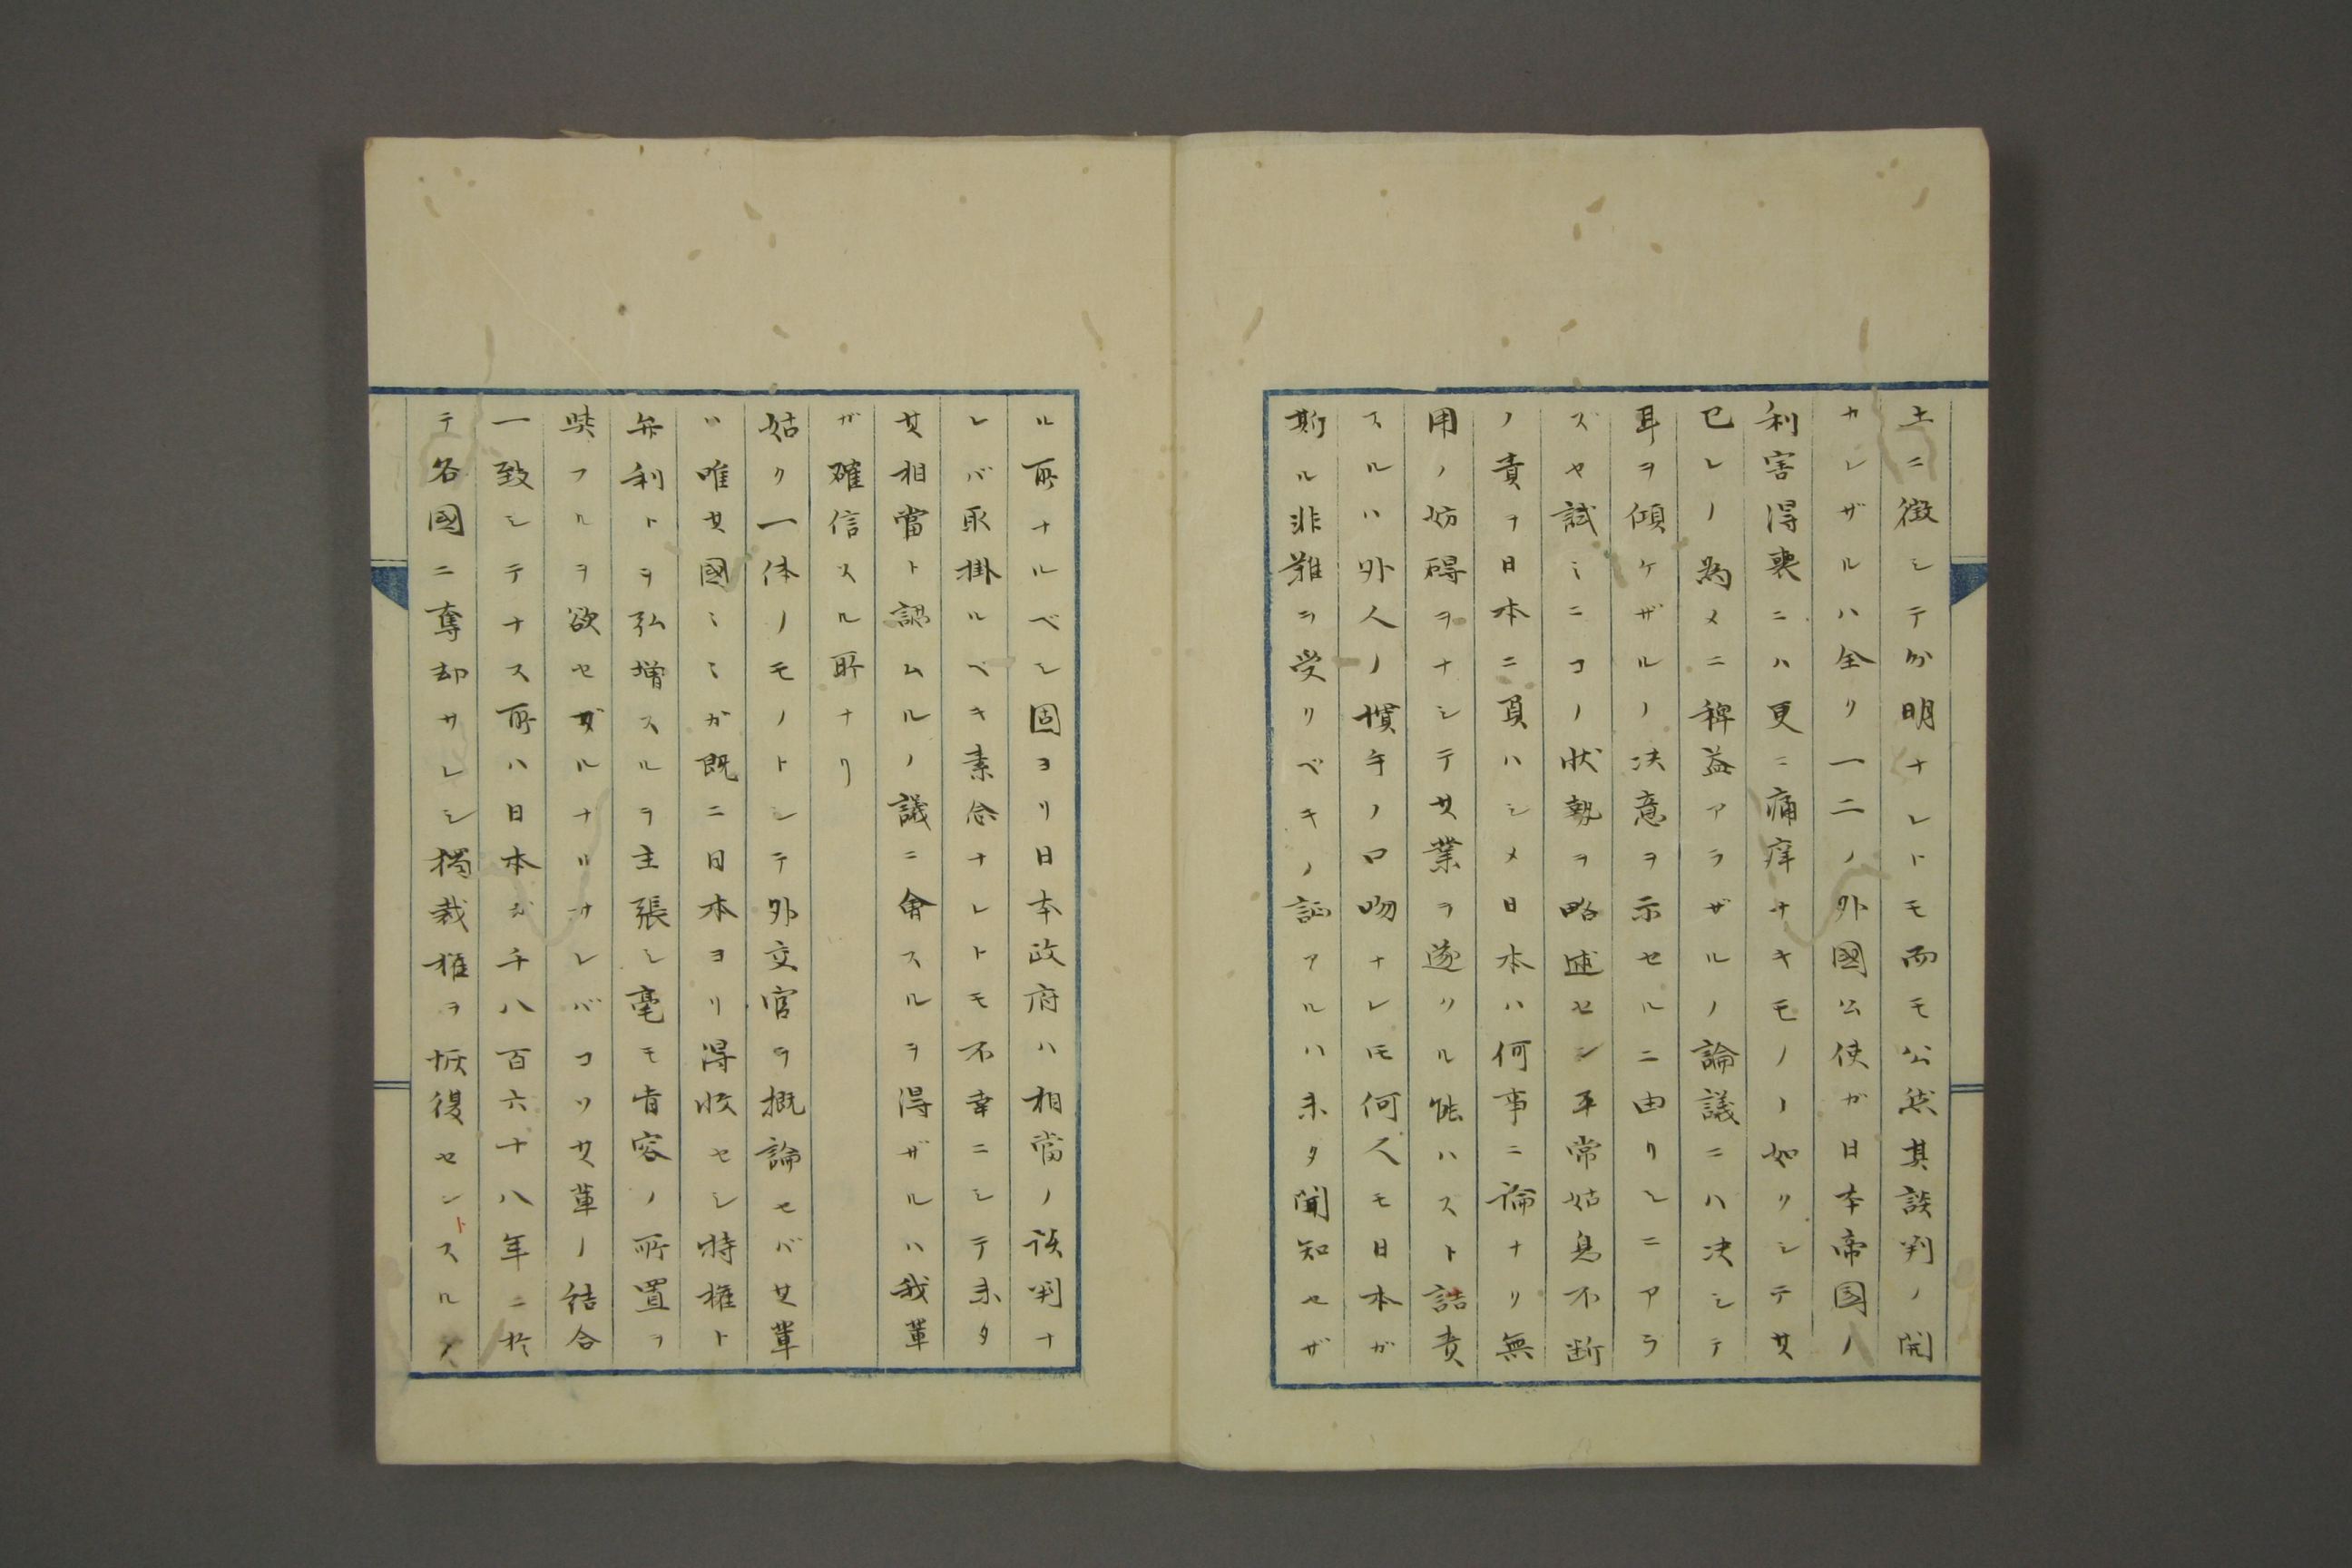 土ニ徴シテ分明ナレトモ而モ公然其談判ノ開
カレザルハ全ク一二ノ外國公使ガ日本帝国ノ
利害得喪ニハ更ニ痛痒ナキモノヽ如クシテ其
已レノ為メニ稗益アラザルノ論議ニハ决シテ
耳ヲ傾ケザルノ决意ヲ示セルニ由リシニアラ
ズヤ試ミニコノ状勢ヲ略述セン平常姑息不断
ノ責ヲ日本ニ負ハシメ日本ハ何事ニ論ナク無
用ノ妨碍ヲナシテ其業ヲ遂クル能ハスト詰責
スルハ外人ノ慣手ノ口吻ナレ𪜈何人モ日本ガ
斯ル非難ヲ受クベキノ証アルハ未タ聞知セザ
ル所ナルベシ固ヨリ日本政府ハ相當ノ談判ナ
レバ取掛ルベキ素合ナレトモ不幸ニシテ未タ
其相當ト認ムルノ議ニ會スルヲ得ザルハ我輩
ガ確信スル所ナリ
姑ク一体ノモノトシテ外交官ヲ概論セバ其輩
ハ唯其國〻〻ガ既ニ日本ヨリ得收セシ特権ト
弁利トヲ弘増スルヲ主張シ毫モ肯容ノ所置ヲ
與フルヲ欲セザルナリサレバコソ其輩ノ結合
一致シテナス所ハ日本ガ千八百六十八年ニ於
テ各國ニ奪却サレシ獨裁権ヲ恢復セントスルヲ